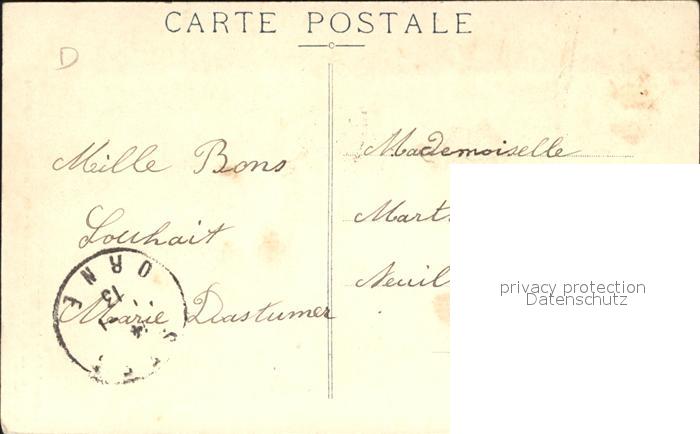 CARTE POSTALE
D
Mille Bons
Souhait
Marie
ORNE
13
Mademoiselle
Mart
Neuil
privacy protection
Datenschutz